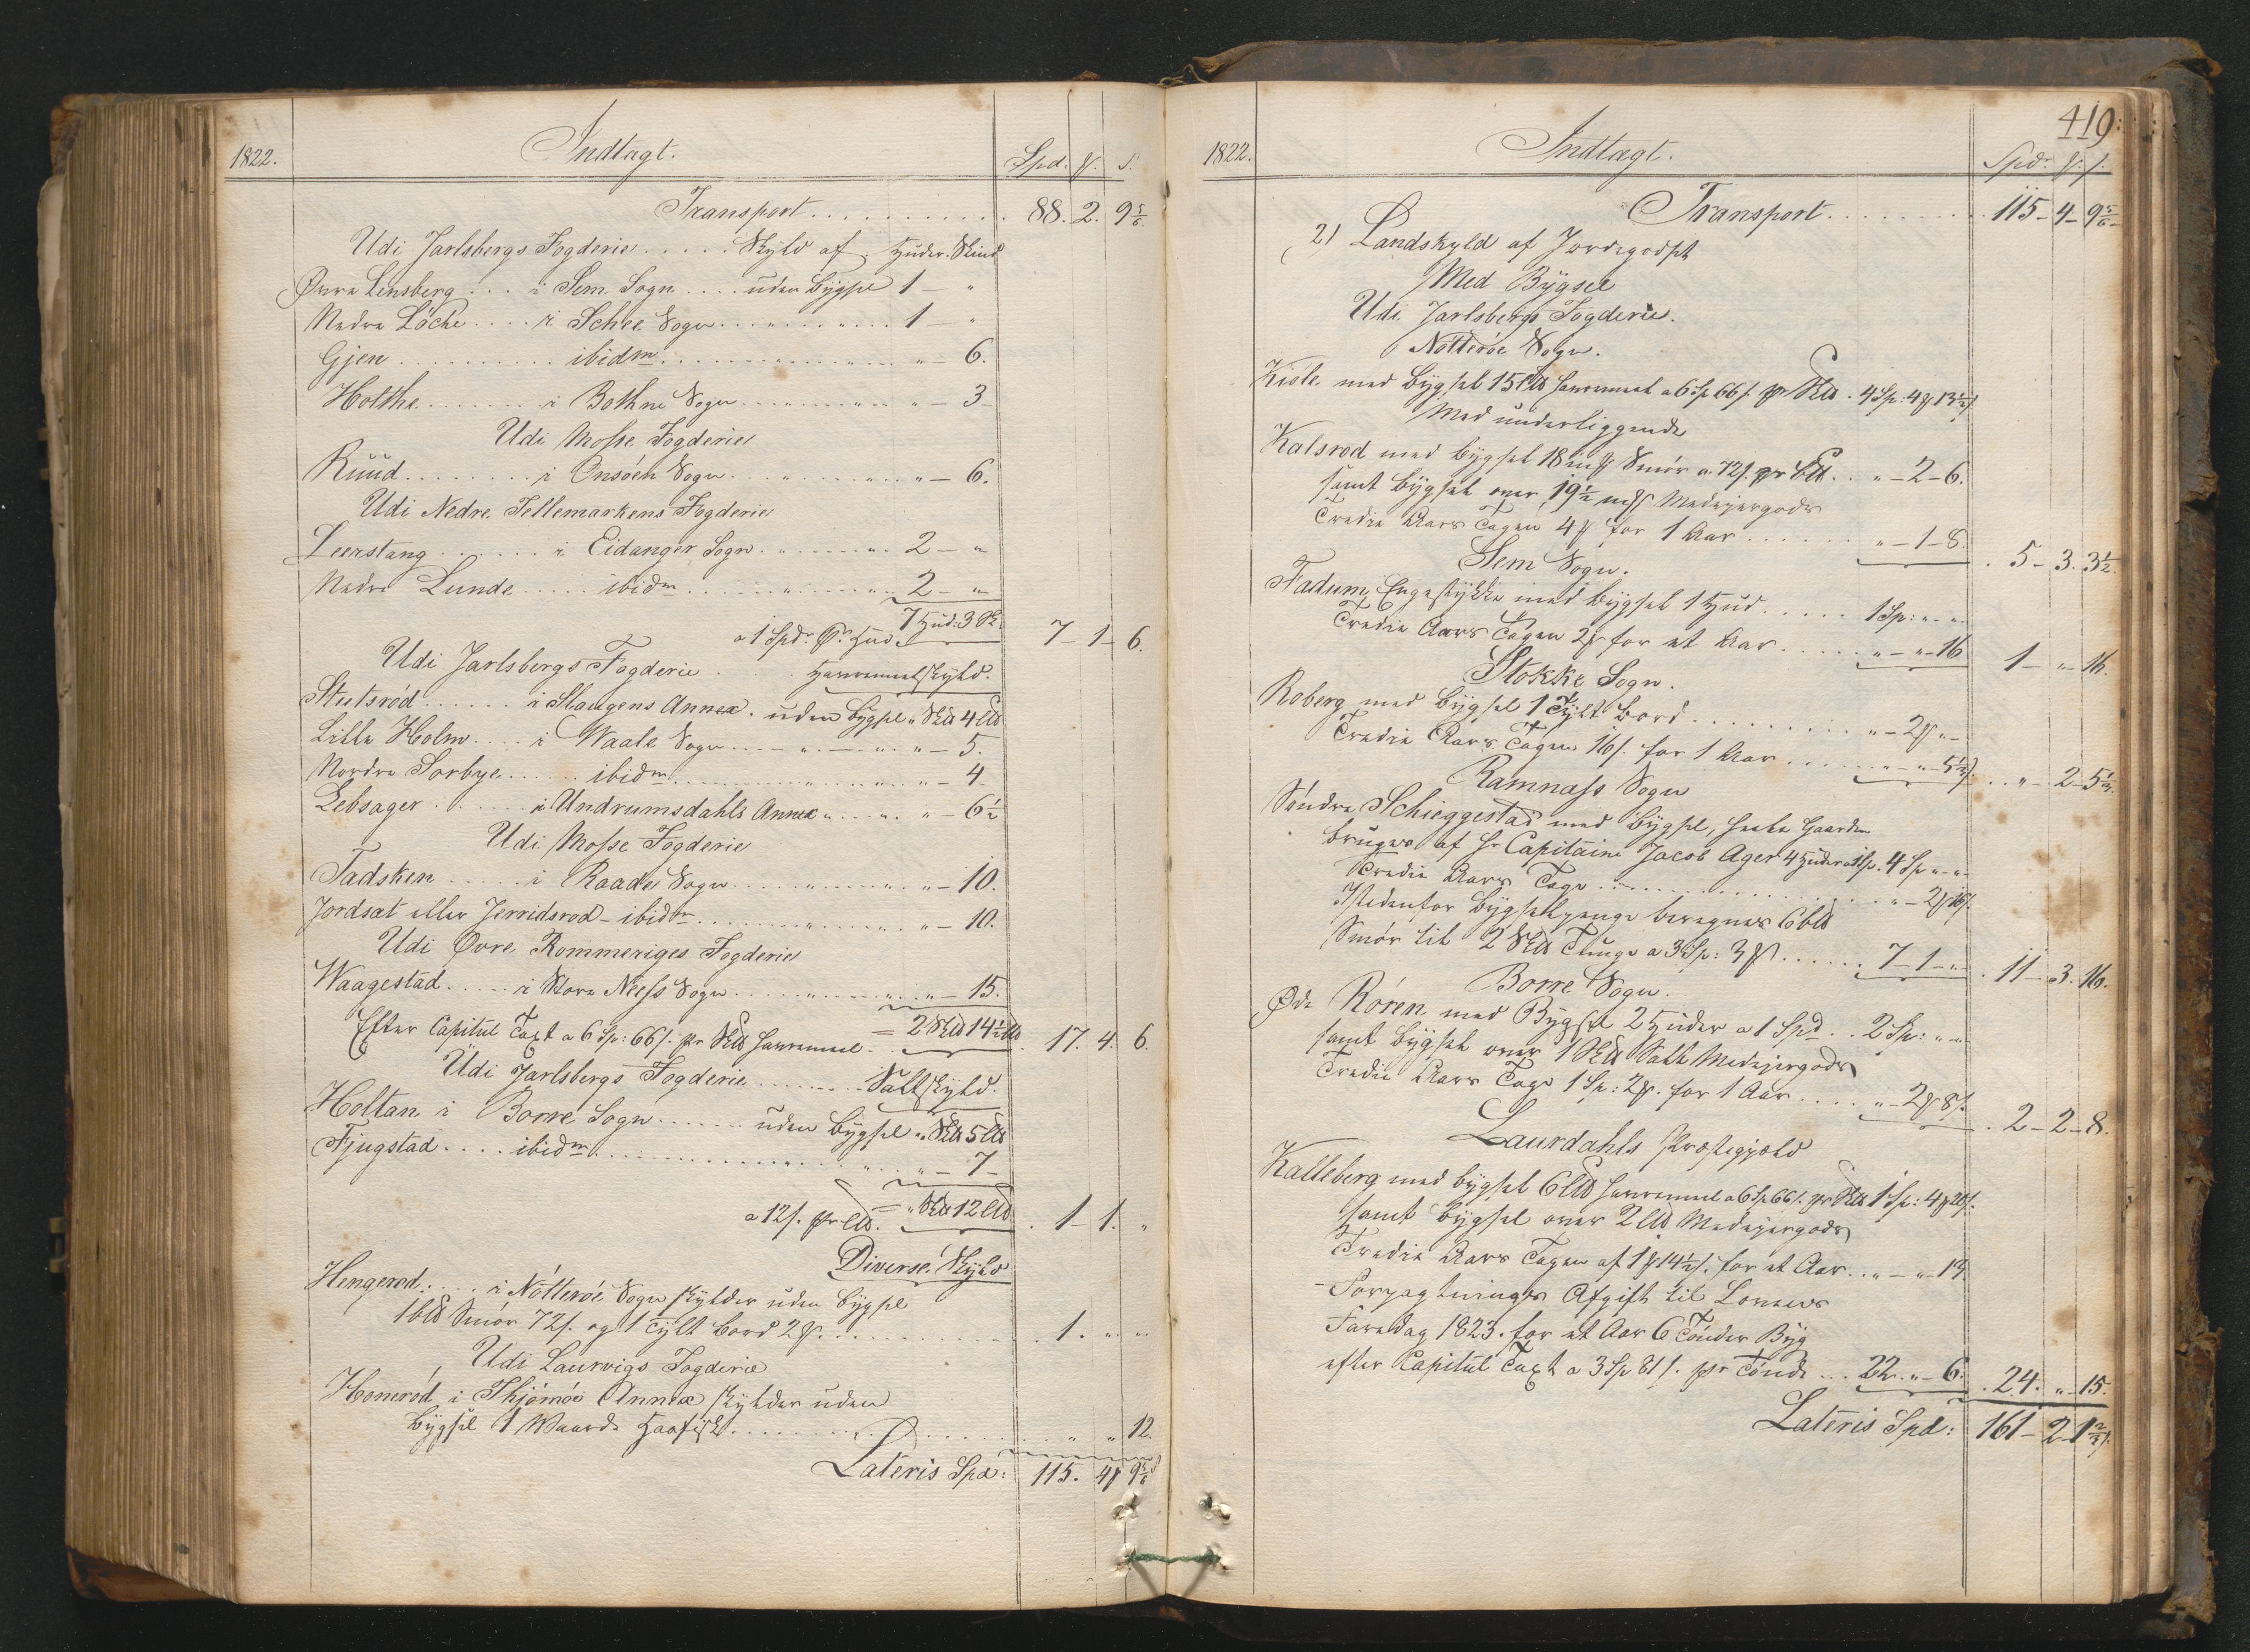 1822. Indtægt. Spd. ß. S.
Transport . . . . . . . . . . . 88. 2. 9 5/6
Udi Jarlsbergs Fogderie . . . . . Skyld af Huder. Skind
Øvre Linsberg . . . i Sem Sogn . . . . uden Bygsel 1 — "
Nedre Löche . . . . i Schee Sogn . . . " . . . " . . . 1 — "
Gjen . . . . . . . . . . ibidm . . . . . . . . . " — 6.
Holthe . . . . . . . i Bothne Sogn . . . " . . . " . . " — 3
Udi Mosse Fogderie
Ruud . . . . . . . . i Onsöen Sogn . . . " . . . " — 6.
Udi Nedre Tellemarkens Fogderie
Leerstang . . . . . . . i Eidanger Sogn . . " . . . " . . 2 — "
Nedre Lunde . . . . . ibidm . . . . . . . . . . 2 — "
7 Hud: 3 Sk.
a 1 Spdr. Pr. Hud. 7 — 1 — 6.
Udi Jarlsbergs Fogderie . . . Harremelskyld.
Stutsröd . . . . . . i Slaugens Annex . uden Bygsel " Sk℔ 4 L℔
Lille Holm . . . . i Waale Sogn . . . . " — 5.
Nordre Sorbye . . . . . . ibidm . . . . . . . . " — 4
Lebsager . . . . . . i Undrumsdahls Annex " . . . . " . . " — 6 1/2
Udi Mosse Fogderie
Tadsken . . . . . i Raade Sogn . . . . " . . . . " . . " — 10.
Jordsæt eller Jerridsrod — ibidm . . . . . . . " — 10.
Udi Øvre Rommeriges Fogderie
Waagestad . . . . . i Store Neess Sogn . . . . " . . . . " . . " — 15.
= 2 Sk℔ 14 1/2 L℔
Efter Capitul Taxt a 6 Sp: 66 s. pr Sk℔ Harremeel . . 17. 4. 6.
Udi Jarlsbergs Fogderie . . . . . . . Saltskyld.
Holtan i Borre Sogn . . . . . . uden Bygsel " Sk℔ 5 L℔
Fjugstad . . . . ibidm . . . . . . . . . . . . . " — 7 —
= " Sk℔ 12 L℔
a 12 s. pr L℔. 1 — 1. "
Diverse Skyld
Hengerod . . . . i Nötteröe Sogn skylder uden Bygsel
1 b℔ Smör 72 s. og 1 Tylt Bord 2 ß. . . . . . . . . . . 1. " "
Udi Laurvigs Fogderie
Honeröd i Thjömöe Annex skylder uden
Bygsel 1 Haafisk . . . . . . . . . . . . " " 12.
Lateris Spd: 115. 4 ß 9 5/6

419.
1822. Indtægt. Spdr. ß. s.
Transport . . . . . . . . 115 — 4 — 9 5/6
2) Landskyld af Jordegodset
Med Bygsel
Udi Jarlsbergs Fogderie.
Nötteröe Sogn.
Kiole med Bygsel 15 L℔ Harremeel a 6 Sp 66 s. pr Sk℔ . 4 Sp: 4 ß 13 1/2 s
Med underliggende
Kalsrod med Bygsel 18 mß Smör a 72 s. pr b℔ . . " — 2 — 6.
samt Bygsel over 19 1/2 mß Medejergods
Tredie Aars Tagen 4 ß for 1 Aar . . . . . . . " — 1 — 8. 5 — 3. 3 1/2.
Sem Sogn.
Fadum, Engestykke med Bygsel 1 Hud . . . . . 1 Sp: " — "
Tredie Aars Tagen 2 ß for et Aar . . . . . " — " 16 1 — " 16.
Stokke Sogn.
Roberg med Bygsel 1 Tylt Bord . . . . . . . . . " — 2 ß " —
Tredie Aars Tagen 16 s. for 1 Aar . . . . . " — " 5 1/3 . . " — 2 — 5 1/3.
Ramnæss Sogn
Söndre Schieggestad med Bygsel, heele Gaarden
bruges af Hr Capitaine Jacob Ager 4 Huder a 1 Sp. 4 Sp " — "
Tredie Aars Tage . . . . . . . . . . . . . " — 2 ß 16 s.
Istedenfor Bygselpenge beregnes 6 b℔
Smör til 2 Sk℔ Tunge a 3 Sp: 3 ß . . . . . . 7 — 1 — " . 11 — 3. 16.
Borre Sogn.
Øde Rören med Bygsel 2 Huder a 1 Spd . . 2 Sp: " — "
samt Bygsel over 1 Sk℔ Salt Medejergods
Tredie Aars Tage 1 Sp: 2 ß. for 1 Aar . . . . " — 2 ß 8 s. . 2 — 2 — 8.
Laurdahls Præstegjæld
Kalleberg med Bygsel 6 L℔ Harremeel a 6 Sp 66 s. pr Sk℔ 1 Sp: 4 ß 20 s.
samt Bygsel over 2 L℔ Medejergods
Tredie Aars Tagen af 1 ß 14 1/2 s. for et Aar . . " — " 13
Forpagtnings Afgift til
Faredag 1823. for et Aar 6 Tönder Byg
efter Capitul Taxt a 3 Sp 81 s. pr Tönde . . . 22. " — 6. . 24. " — 15.
Lateris Spd: 161 — 2 — 1 2/3 s.